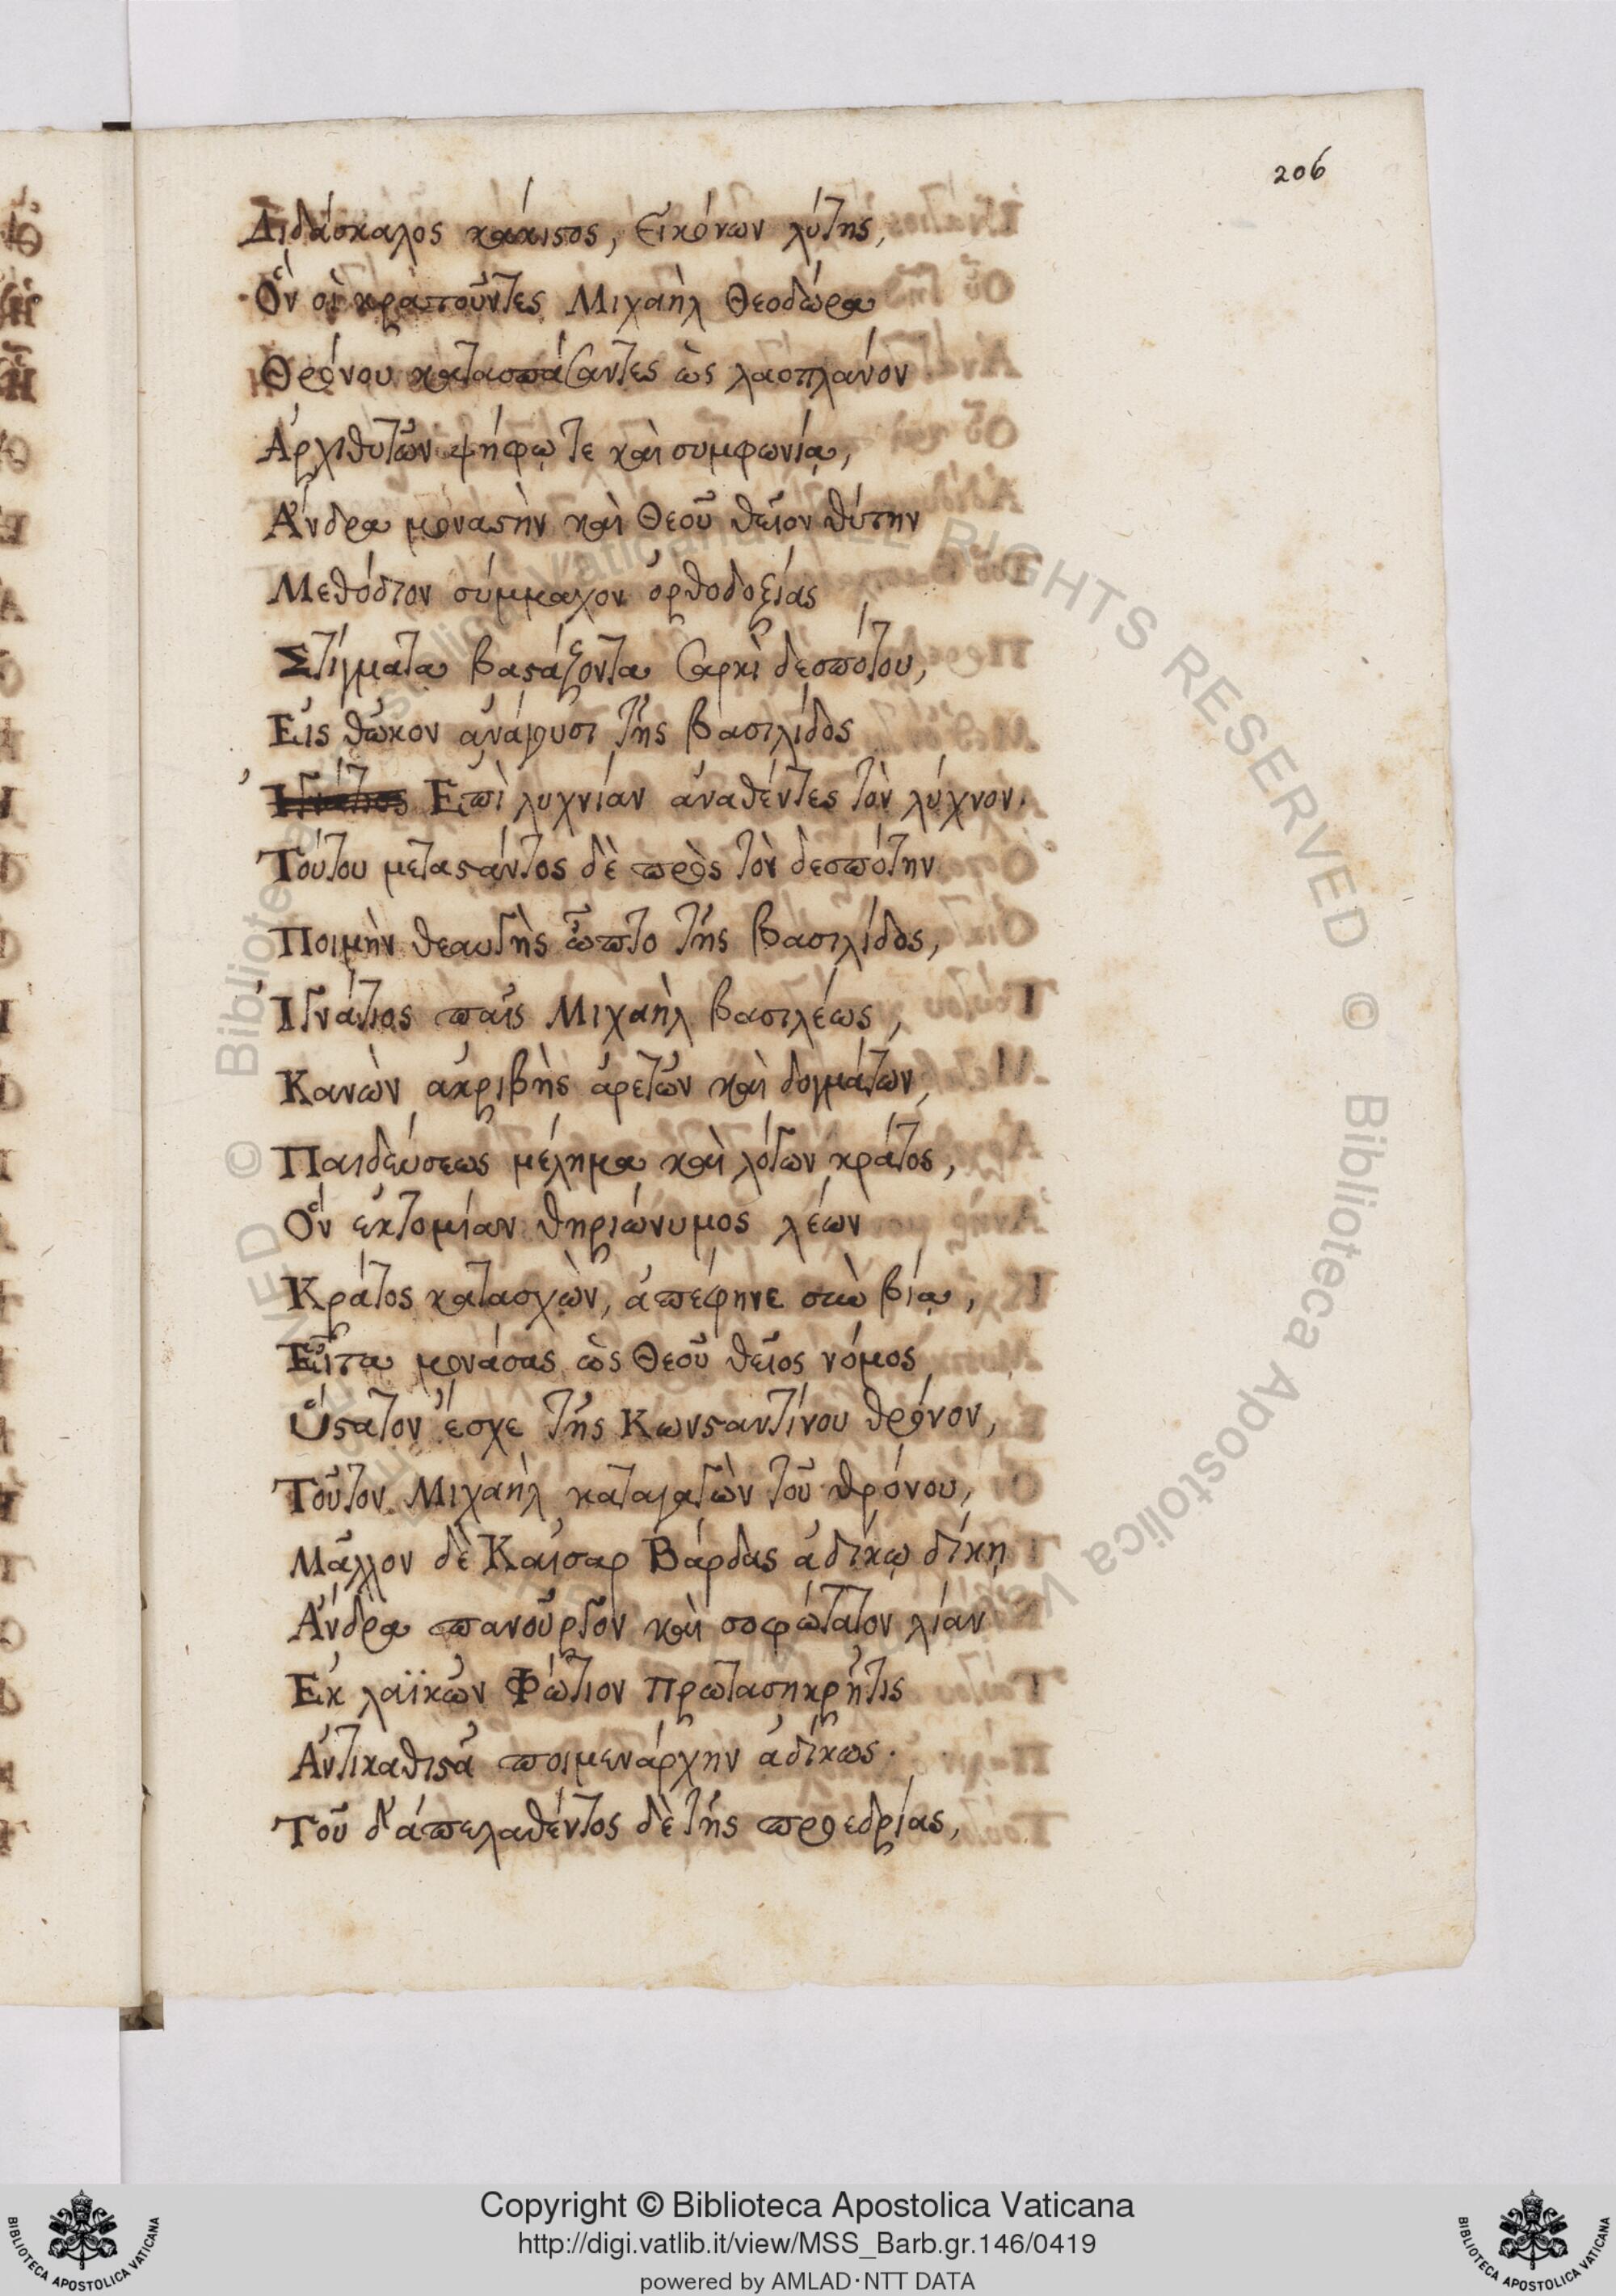 206
Διδάσκαλος κάκιστος, Εἰκόνων λύτης,
Ὃν οἱ κρατοῦντες Μιχαὴλ Θεοδώρα
Θρόνου κατασπάσαντες ὡς λαοπλάνον
Ἀρχιθυτῶν ψήφῳ τε καὶ συμφωνίᾳ,
Ἄνδρα μοναστὴν καὶ Θεοῦ θεῖον θύτην
Μεθόδιον σύμμαχον ὀρθοδοξίας
Στίγματα βαστάζοντα σαρκὶ δεσπότου,
Εἰς θῶκον ἀνάγουσι τῆς βασιλίδος
Ἰγνάτιος Ἐπὶ λυχνίαν ἀναθέντες τὸν λύχνον.
Τούτου μεταστάντος δὲ πρὸς τὸν δεσπότην
Ποιμὴν θεαυγὴς ὦπτο τῆς βασιλίδος,
Ἰγνάτιος παῖς Μιχαὴλ βασιλέως,
Κανὼν ἀκριβὴς ἀρετῶν καὶ δογμάτων,
Παιδεύσεως μέλημα καὶ λόγων κράτος,
Ὃν ἐκτομίαν θηριώνυμος λέων
Κράτος κατασχὼν, ἀπέφηνε σὺν βίᾳ,
Εἶτα μονάσας ὡς Θεοῦ θεῖος νόμος
Ὕστατον ἔσχε τῆς Κωνσταντίνου θρόνον,
Τοῦτον Μιχαὴλ καταγαγὼν τοῦ θρόνου,
Μᾶλλον δὲ Καῖσαρ Βάρδας ἀδίκῳ δίκῃ
Ἄνδρα πανοῦργον καὶ σοφώτατον λίαν
Ἐκ λαϊκῶν Φώτιον Πρωτασηκρῆτις
Ἀντικαθιστᾶ ποιμενάρχην ἀδίκως.
Τοῦ δ' ἀπελαθέντος δὲ τῆς προεδρίας,
© Biblioteca Apostolica Vaticana ALL RIGHTS RESERVED © Biblioteca Apostolica
Copyright © Biblioteca Apostolica Vaticana
http://digi.vatlib.it/view/MSS_Barb.gr.146/0419
powered by AMLAD·NTT DATA
BIBLIOTECA APOSTOLICA VATICANA
BIBLIOTECA APOSTOLICA VATICANA